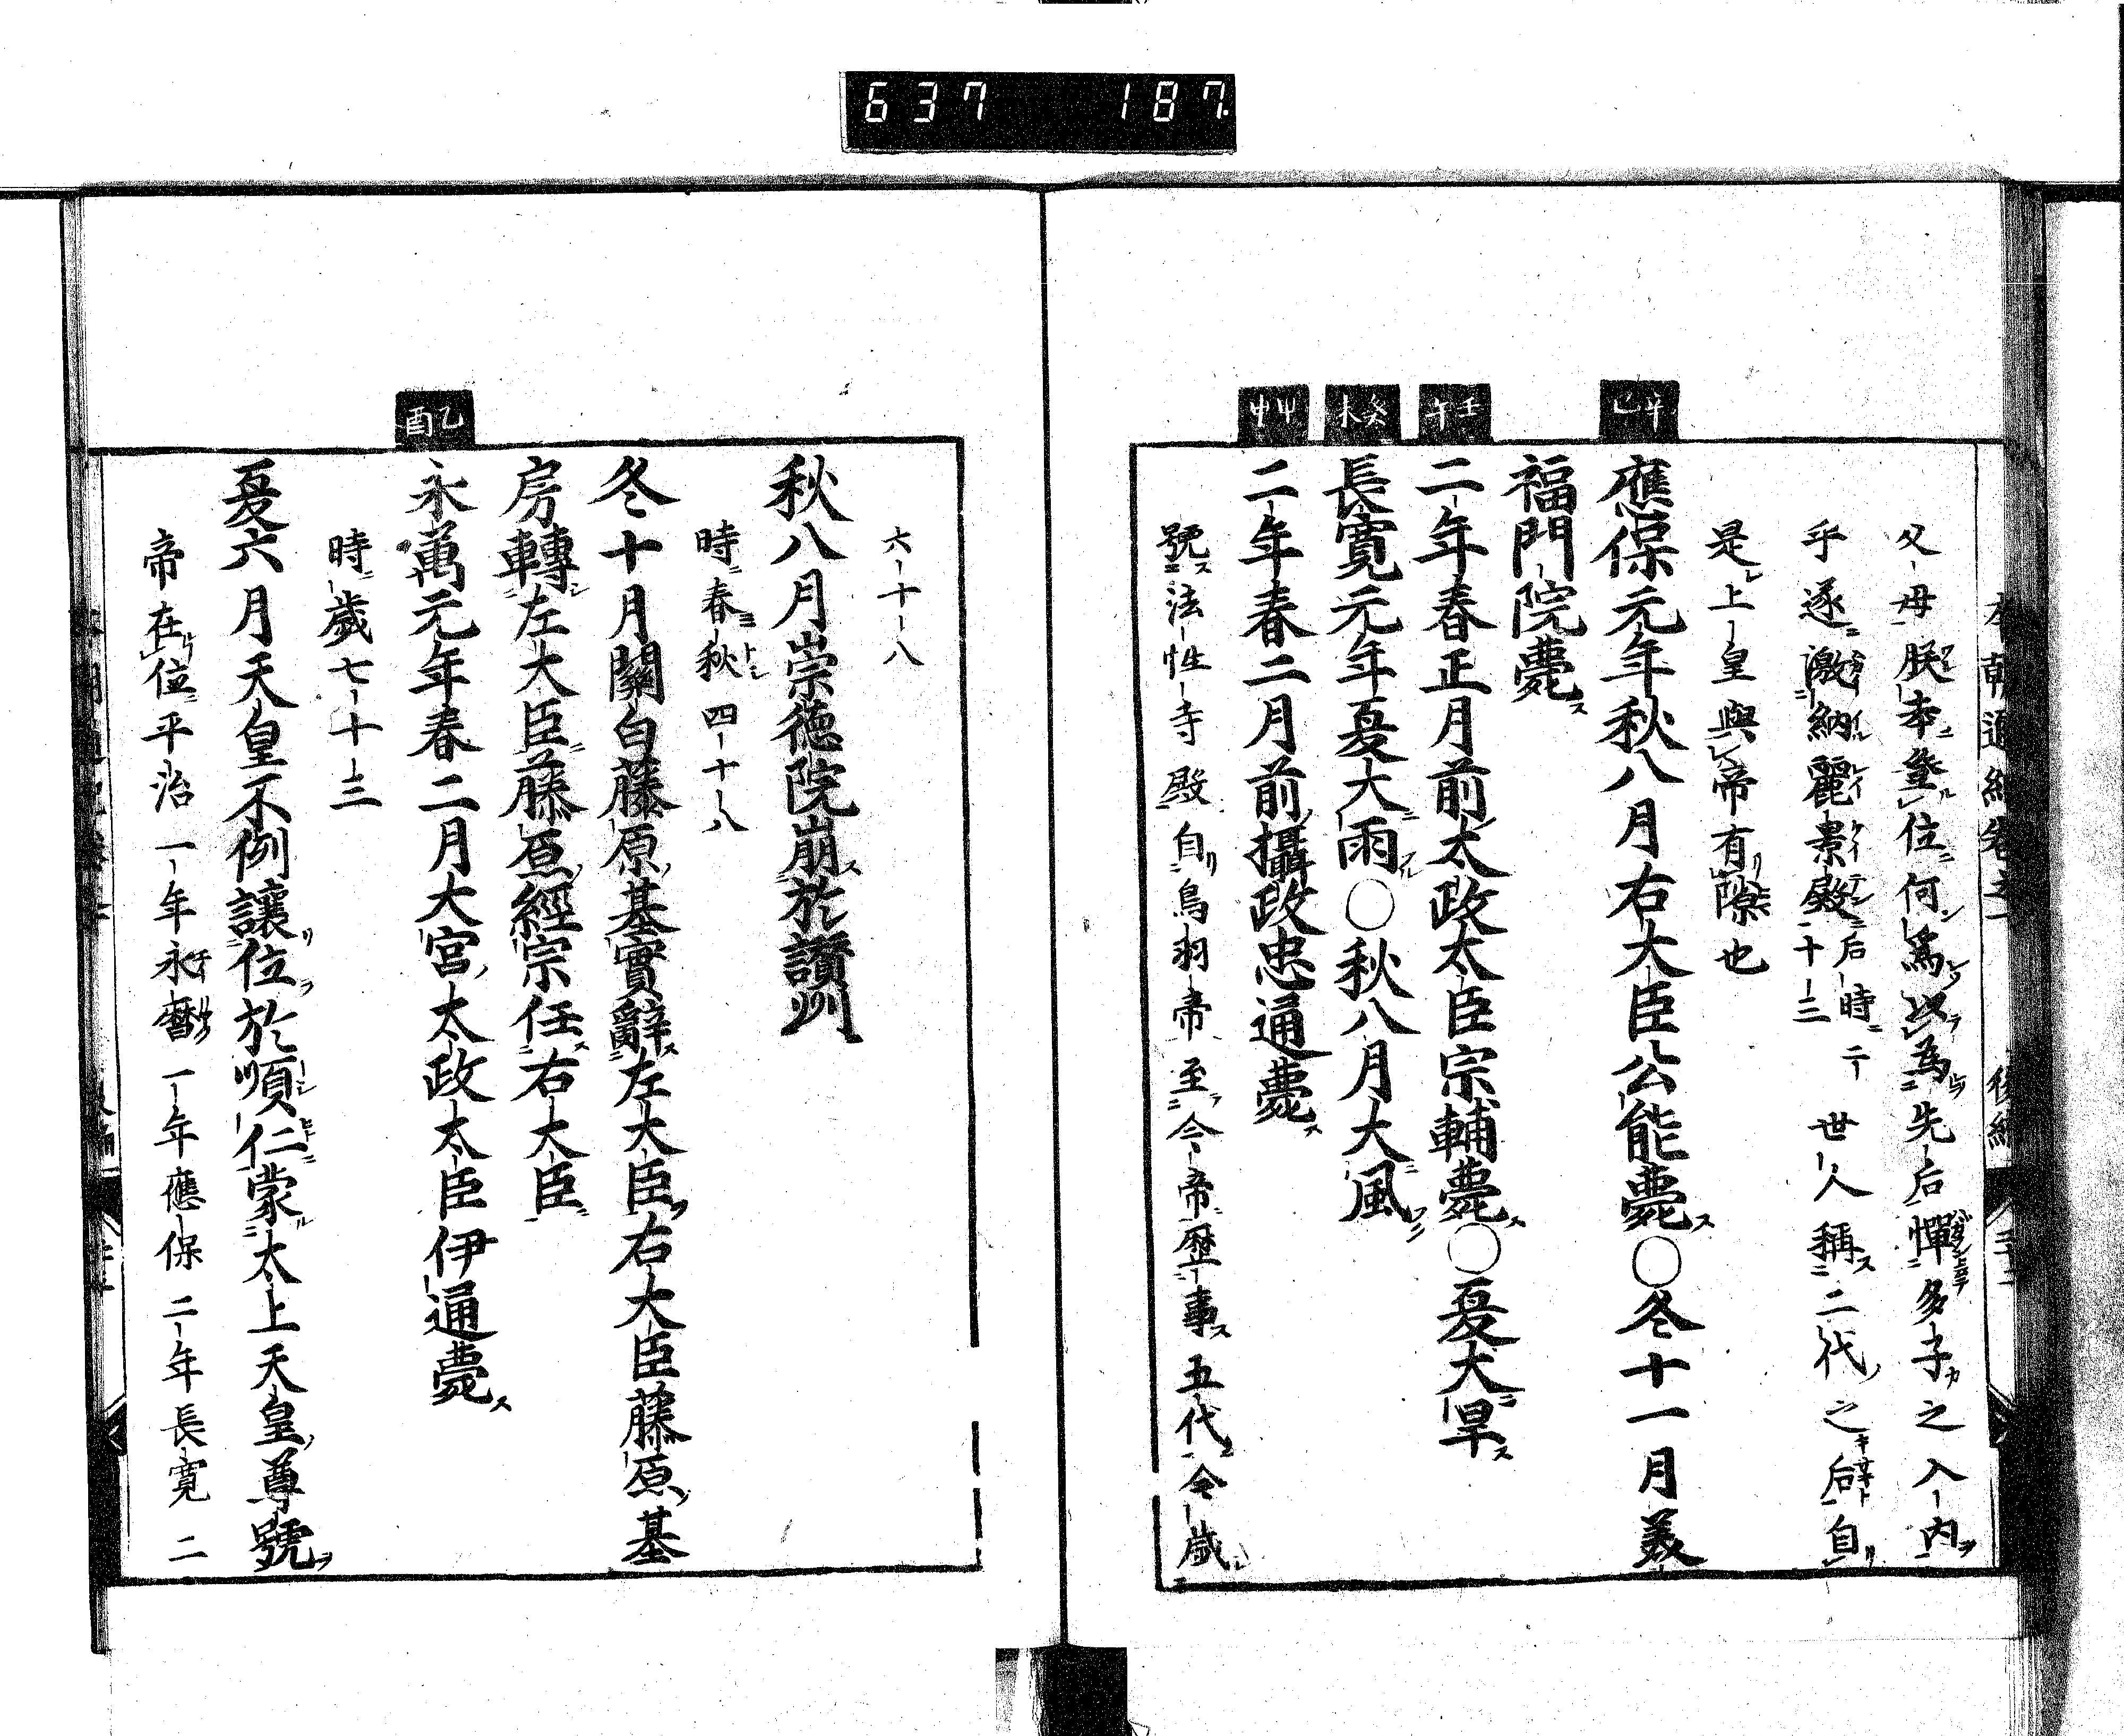 637 187
父母朕幸登位何爲以為先后憚多子之入内
乎遂激納麗景殿后時二十三世人稱二代之后自
是上皇與帝有隙也
辛巳
應保元年秋八月右大臣公能薨○冬十一月美
福門院薨
壬午
二年春正月前太政太臣宗輔薨○夏大旱
癸未
長寛元年夏大雨○秋八月大風
二年春二月前攝政忠通薨
號法性寺殿自鳥羽帝至今帝歴事五代令歳
六十八
秋八月崇徳院崩於讃州
時春秋四十八
冬十月關白藤原基實辭左大臣右大臣藤原基
房轉左大臣藤原經宗任右大臣
乙酉
永萬元年春二月大宮太政太臣伊通薨
時歳七十三
夏六月天皇不例讓位於順仁蒙太上天皇尊號
帝在位平治一年永曆一年應保二年長寛二